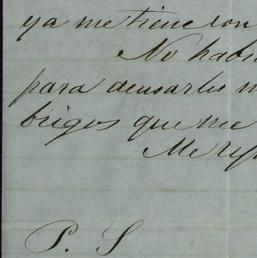 ya me tiene con
No habi
para acusarles
trigos que me
Me rep
P. S